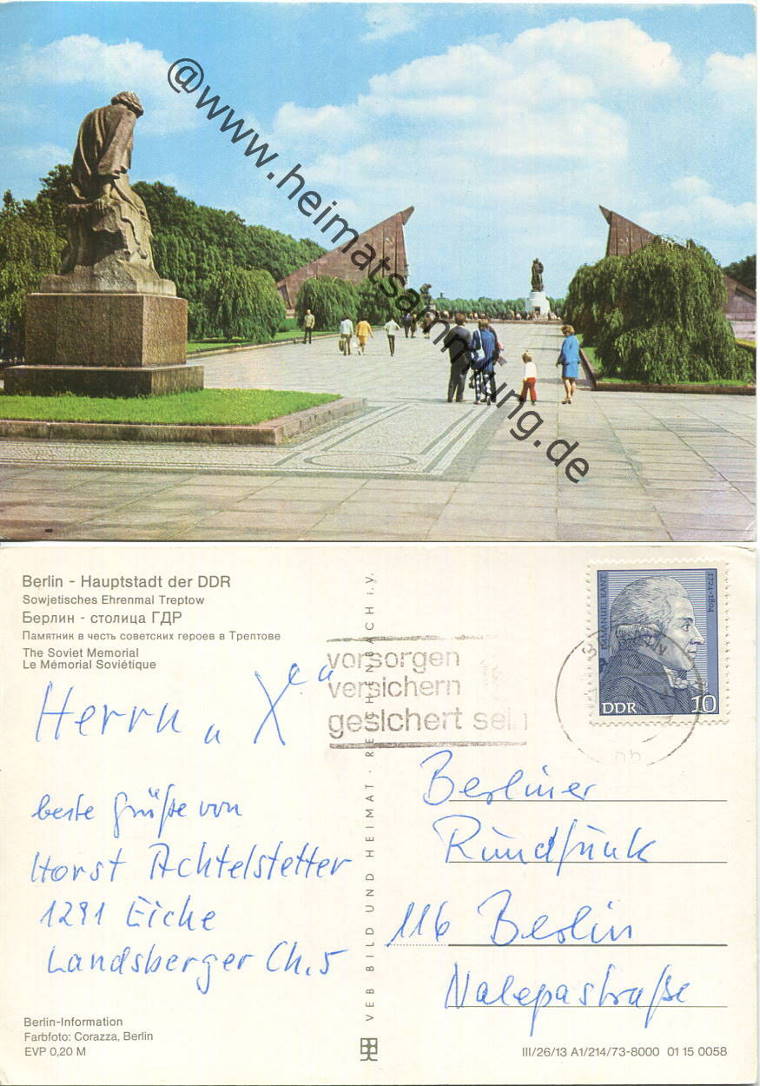 @www.heimatsammlung.de
Berlin - Hauptstadt der DDR
Sowjetisches Ehrenmal Treptow
Берлин - столица ГДР
Памятник в честь советских героев в Трептове
The Soviet Memorial
Le Mémorial Soviétique
Herrn "X"
beste Grüße von
Horst Achtelstetter
1291 Eiche
Landsberger Ch. 5
Berlin-Information
Farbfoto: Corazza, Berlin
EVP 0,20 M
VEB BILD UND HEIMAT · REICHENBACH i.V.
vorsorgen
versichern
gesichert sein
IMMANUEL KANT
1724-1804
DDR 10
Berliner
Rundfunk
116 Berlin
Nalepastraße
III/26/13 A1/214/73-8000 01 15 0058